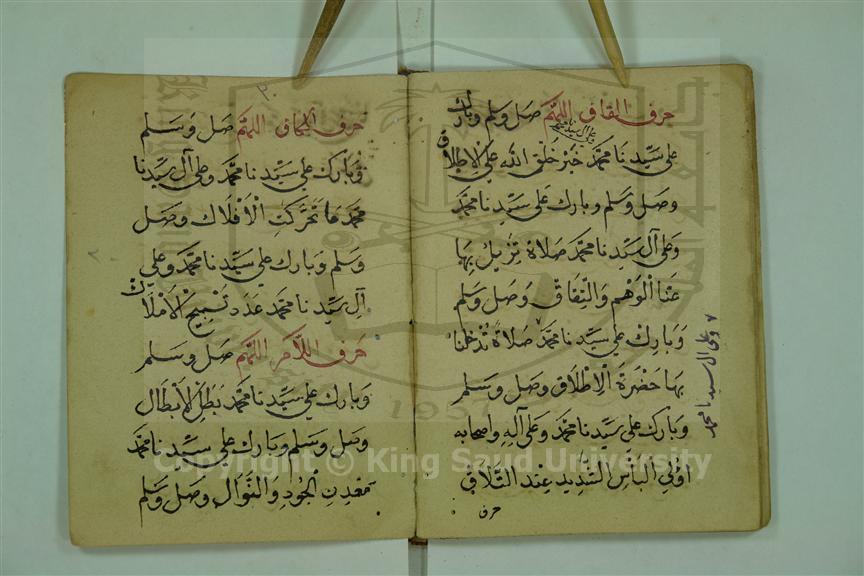 حرف القاف اللهم صل وسلم وبارك
على سيدنا محمد خير خلق الله على الاطلاق
وعلى آل سيدنا محمد
وصل وسلم وبارك على سيدنا محمد
وعلى آل سيدنا محمد صلاة تزيل بها
عنا الوهم والنفاق وصل وسلم
وبارك على سيدنا محمد صلاة تدخلنا
وعلى ال سيدنا محمد
بها حضرة الاطلاق وصل وسلم
وبارك على سيدنا محمد وعلى آله واصحابه
اولي الباس الشديد عند التلاق
حرف
٢٠
حرف الكاف اللهم صل وسلم
وبارك على سيدنا محمد وعلى آل سيدنا
محمد ما تحركت الافلاك وصل
وسلم وبارك على سيدنا محمد وعلى
آل سيدنا محمد عدد تسبيح الاملاك
حرف اللام اللهم صل وسلم
وبارك على سيدنا محمد بطل الابطال
وصل وسلم وبارك على سيدنا محمد
معدن الجود والنوال وصل وسلم
1957
Copyright © King Saud University